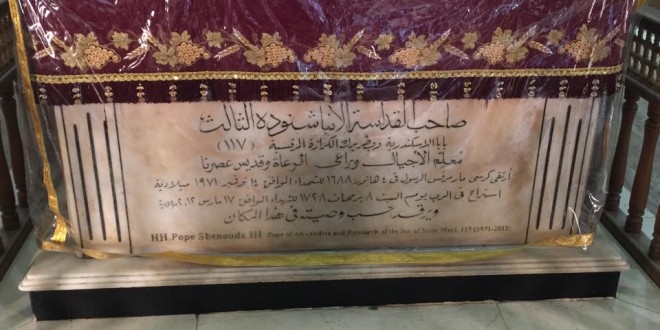 صاحب القداسة الأنبا شنوده الثالث
بابا الإسكندرية وبطريرك الكرازة المرقسية (١١٧)
معلم الأجيال وراعى الرعاة وقديس عصرنا
أرتقى كرسى مارمرقس الرسول فى ٤ هاتور ١٦٨٨ للشهداء الموافق ١٤ نوفمبر ١٩٧١ ميلادية
استراح فى الرب يوم السبت ٨ برمهات ١٧٢٨ للشهداء الموافق ١٧ مارس ٢٠١٢ ميلادية
ويرقد حسب وصيته فى هذا المكان
HH. Pope Shenouda III Pope of Alexandria and Patriarch of the See of Saint Mark 117 (1971-2012)